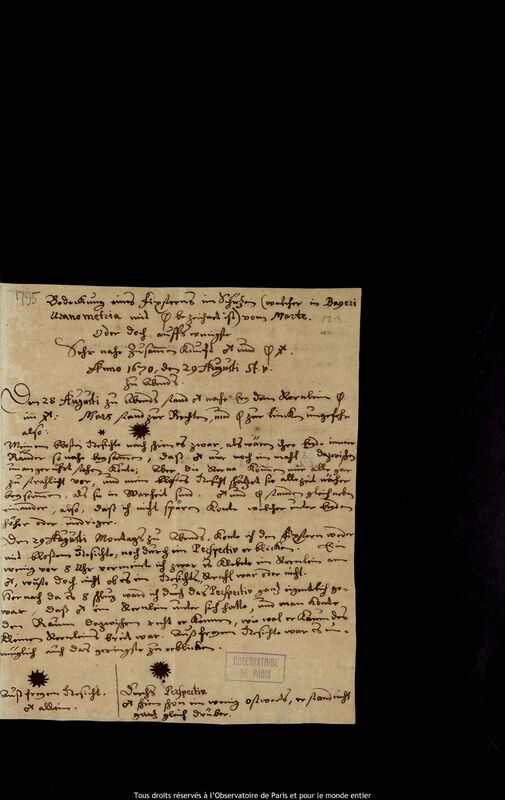 1795
Bedeckung eines Fixsterns im Schüzen (welcher in Bayeri
Uranometria mit φ bezeichnet ist) vom Marte.
123
Oder doch auffs wenigste
Sehr nahe Zusammenkunfft ♂ und φ ♐.
Anno 1670, den 29 Augusti St. v.
Zu Abends.
Den 28 Augusti zu Abends stand ♂ nahe bey dem Sternlein φ
im ♐: Mars stand zur Rechten, und φ zur lincken ungefehr
also:
Meinem blossen Gesichte nach schien es zwar, als wären ihre beyde
Ränder so nahe beysammen, daß ♂ nur noch ein mahl dazwischen
stehen könte; Aber die Sterne kommen mir alle gar
zu strahlicht vor, und mein blosses Gesicht schätzet sie allezeit näher
beysammen, als sie in Warheit sind. ♂ und φ stunden gleich neben
einander, also, daß ich nicht spüren konte welcher unter beyden
höher oder niedriger.
Den 29 Augusti Montags zu Abends, konte ich den Fixstern weder
mit blossem Gesichte, noch durch ein Perspectiv erblicken. Ein
wenig vor 8 Uhr vermeint ich zwar es klebete ein Sternlein am
♂, wuste doch nicht ob es ein Gesichts Strahl war oder nicht.
Hernach da es 8 schlug ward ich durch das Perspectiv ganz eigentlich ge-
war, daß ♂ ein Sternlein unter sich hatte, und man konte
den Raum dazwischen recht erkennen, wie wol er kaum des
kleinen Sternleins breit war. Aus freyem Gesichte war es un-
müglich auch das geringste zu erblicken.
OBSERVATOIRE
DE PARIS
Aus freyem Gesicht.
♂ allein.
Durchs Perspectiv
♂ schien schon ein wenig ostwerts, er stand nicht
ganz gleich drüber.
Tous droits réservés à l'Observatoire de Paris et pour le monde entier